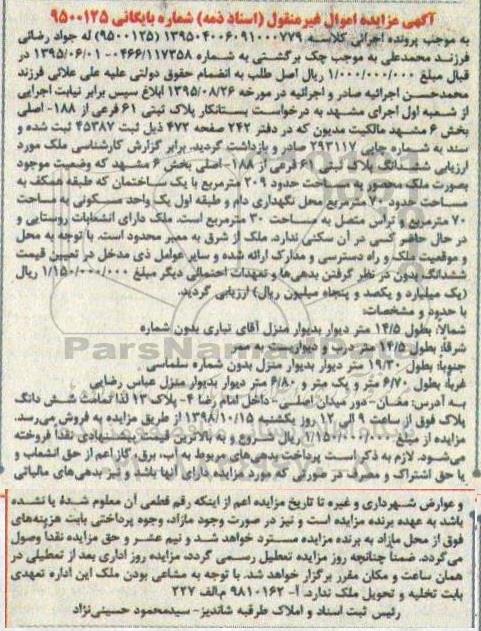 آگهی مزایده اموال غیرمنقول (اسناد ذمه) شماره بایگانی ۹۵۰۰۱۲۵
به موجب پرونده اجرائی کلاسه ۱۳۹۵۰۴۰۰۶۰۹۱۰۰۰۷۷۹ (۹۵۰۰۱۲۵) له جواد رضائی
فرزند محمدعلی به موجب چک برگشتی به شماره ۰۴۶۶/۱۱۷۳۵۸-۱۳۹۵/۰۶/۰۱ در
قبال مبلغ ۱/۰۰۰/۰۰۰/۰۰۰ ریال اصل طلب به انضمام حقوق دولتی علیه علی علائی فرزند
محمدحسن اجرائیه صادر و اجرائیه در مورخه ۱۳۹۵/۰۸/۲۶ ابلاغ سپس برابر نیابت اجرایی
از شعبه اول اجرای مشهد به درخواست بستانکار پلاک ثبتی ۶۱ فرعی از ۱۸۸- اصلی
بخش ۶ مشهد مالکیت مدیون که در دفتر ۲۴۲ صفحه ۴۷۲ ذیل ثبت ۴۵۳۸۷ ثبت شده و
سند به شماره چاپی ۲۹۳۱۱۷ صادر و بازداشت گردید. برابر گزارش کارشناسی ملک مورد
ارزیابی ششدانگ پلاک ثبتی ۶۱ فرعی از ۱۸۸-اصلی بخش ۶ مشهد که وضعیت موجود
بصورت ملک محصور به مساحت حدود ۲۰۹ مترمربع با یک ساختمان که طبقه همکف به
مساحت حدود ۷۰ مترمربع محل نگهداری دام و طبقه اول یک واحد مسکونی به مساحت
۷۰ مترمربع و تراس متصل به مساحت ۳۰ مترمربع است. ملک دارای انشعابات روستایی و
در حال حاضر کسی در آن سکنی ندارد. ملک از شرق به معبر محدود است. با توجه به محل
و موقعیت ملک و راه دسترسی و مدارک ارائه شده و سایر عوامل ذی مدخل در تعیین قیمت
ششدانگ بدون در نظر گرفتن بدهی‌ها و تعهدات احتمالی دیگر مبلغ ۱/۱۵۰/۰۰۰/۰۰۰ ریال
(یک میلیارد و یکصد و پنجاه میلیون ریال) ارزیابی گردید.
با حدود و مشخصات:
شمالاً: بطول ۱۴/۵ متر دیوار بدیوار منزل آقای تیاری بدون شماره
شرقاً: بطول ۱۴/۵ متر درب و دیواریست به ممر
جنوباً: بطول ۱۹/۳۰ متر دیوار بدیوار منزل بدون شماره سلماسی
غرباً: بطول ۶/۷۰ متر و یک متر و ۶/۸۰ متر دیوار بدیوار منزل عباس رضایی
به آدرس: مغان- دور میدان اصلی- داخل امام رضا ۴- پلاک ۱۳ لذا تمامت شش دانگ
پلاک فوق از ساعت ۹ الی ۱۲ روز یکشنبه ۱۳۹۸/۱۰/۱۵ از طریق مزایده به فروش می‌رسد.
مزایده از مبلغ ۱/۱۵۰/۰۰۰/۰۰۰ ریال شروع و به بالاترین قیمت پیشنهادی نقداً فروخته
می‌شود. لازم به ذکر است پرداخت بدهی‌های مربوط به آب، برق، گاز اعم از حق انشعاب و
یا حق اشتراک و مصرف در صورتی که مورد مزایده دارای آنها باشد و نیز بدهی‌های مالیاتی
و عوارض شهرداری و غیره تا تاریخ مزایده اعم از اینکه رقم قطعی آن معلوم شده یا نشده
باشد به عهده برنده مزایده است و نیز در صورت وجود مازاد، وجوه پرداختی بابت هزینه‌های
فوق از محل مازاد به برنده مزایده مسترد خواهد شد و نیم عشر و حق مزایده نقداً وصول
می‌گردد. ضمناً چنانچه روز مزایده تعطیل رسمی گردد، مزایده روز اداری بعد از تعطیلی در
همان ساعت و مکان مقرر برگزار خواهد شد. با توجه به مشاعی بودن ملک این اداره تعهدی
بابت تخلیه و تحویل ملک ندارد. آ- ۹۸۱۰۱۶۲ م.الف ۲۲۷
رئیس ثبت اسناد و املاک طرقبه شاندیز- سیدمحمود حسینی‌نژاد
ParsNamadData